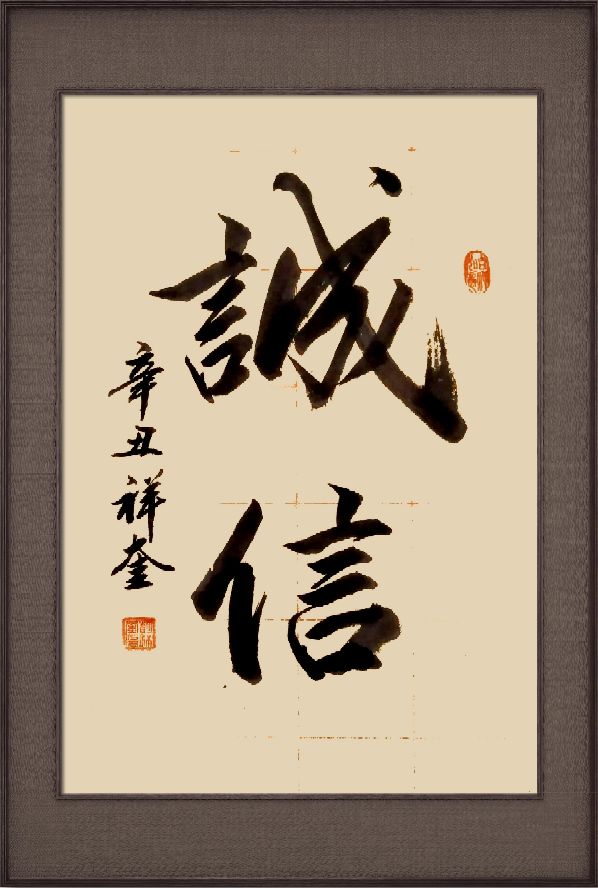 誠信
辛丑祥奎